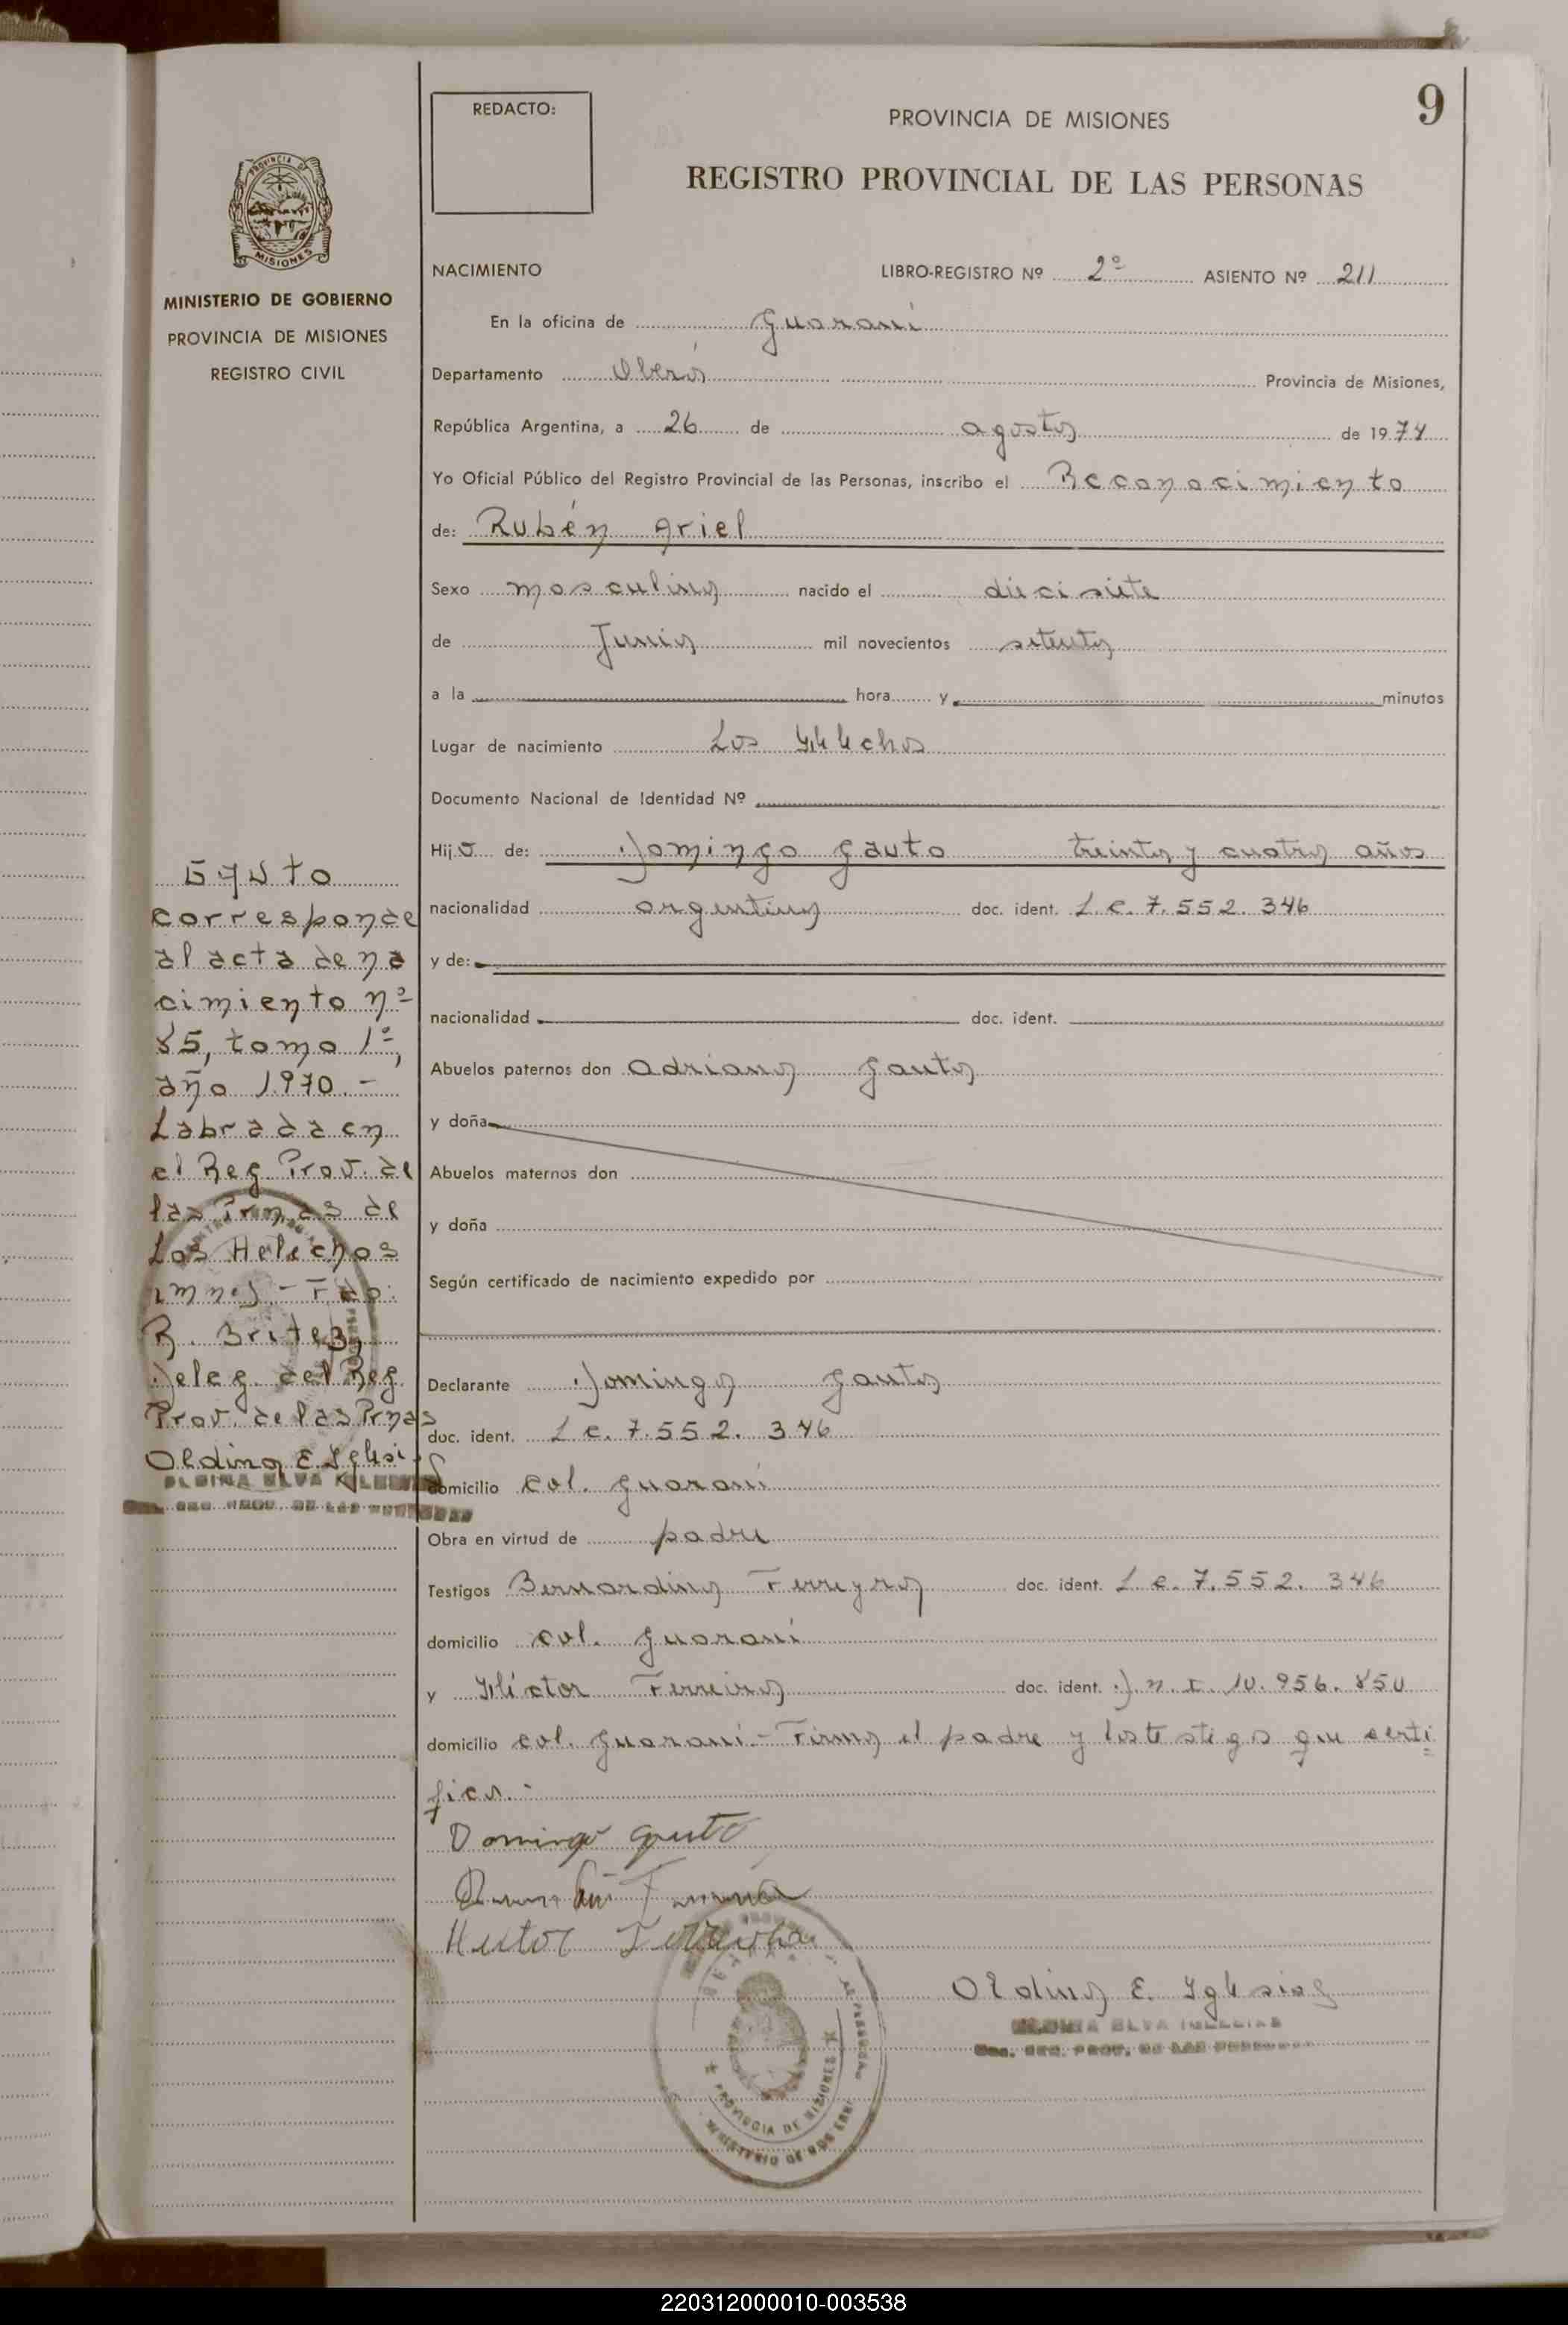 9
REDACTO:
PROVINCIA DE MISIONES
REGISTRO PROVINCIAL DE LAS PERSONAS
PROVINCIA DE
MISIONES
MINISTERIO DE GOBIERNO
PROVINCIA DE MISIONES
REGISTRO CIVIL
NACIMIENTO LIBRO-REGISTRO Nº 2º ASIENTO Nº 211
En la oficina de Guaraní
Departamento Oberá Provincia de Misiones,
República Argentina, a 26 de agosto de 1974
Yo Oficial Público del Registro Provincial de las Personas, inscribo el Reconocimiento
de: Rubén Ariel
Sexo masculino nacido el diecisiete
de Junio mil novecientos setenta
a la hora y minutos
Lugar de nacimiento Los Helechos
Documento Nacional de Identidad Nº
Hijo de: Domingo Gauto treinta y cuatro años
nacionalidad argentino doc. ident. L.E. 7.552.346
y de:
nacionalidad doc. ident.
Abuelos paternos don Adriano Gauto
y doña
Abuelos maternos don
y doña
Según certificado de nacimiento expedido por
Declarante Domingo Gauto
doc. ident. L.E. 7.552.346
domicilio Col. Guaraní
Obra en virtud de padre
Testigos Bernardino Ferreyra doc. ident. L.E. 7.552.346
domicilio Col. Guaraní
y Héctor Ferreira doc. ident. D.N.I. 10.956.850
domicilio Col. Guaraní - Firma el padre y los testigos que certi
fico.-
Domingo Gauto
Hector Ferreira
Oldina E. Iglesias
ELVA IGLESIAS
REG. PROV. DE LAS PERSONAS
PROVINCIA DE MISIONES
MINISTERIO DE GOBIERNO
Gauto
corresponde
al acta de na
cimiento nº
85, tomo 1º,
año 1970.-
Labrada en
el Reg. Prov. de
las Prnas de
Los Helechos
(mnes) - Fdo:
R. Britez,
Deleg. del Reg.
Prov. de las Prnas
Oldina E. Iglesias
ELVA IGLESIAS
REG. PROV. DE LAS PERSONAS
220312000010-003538